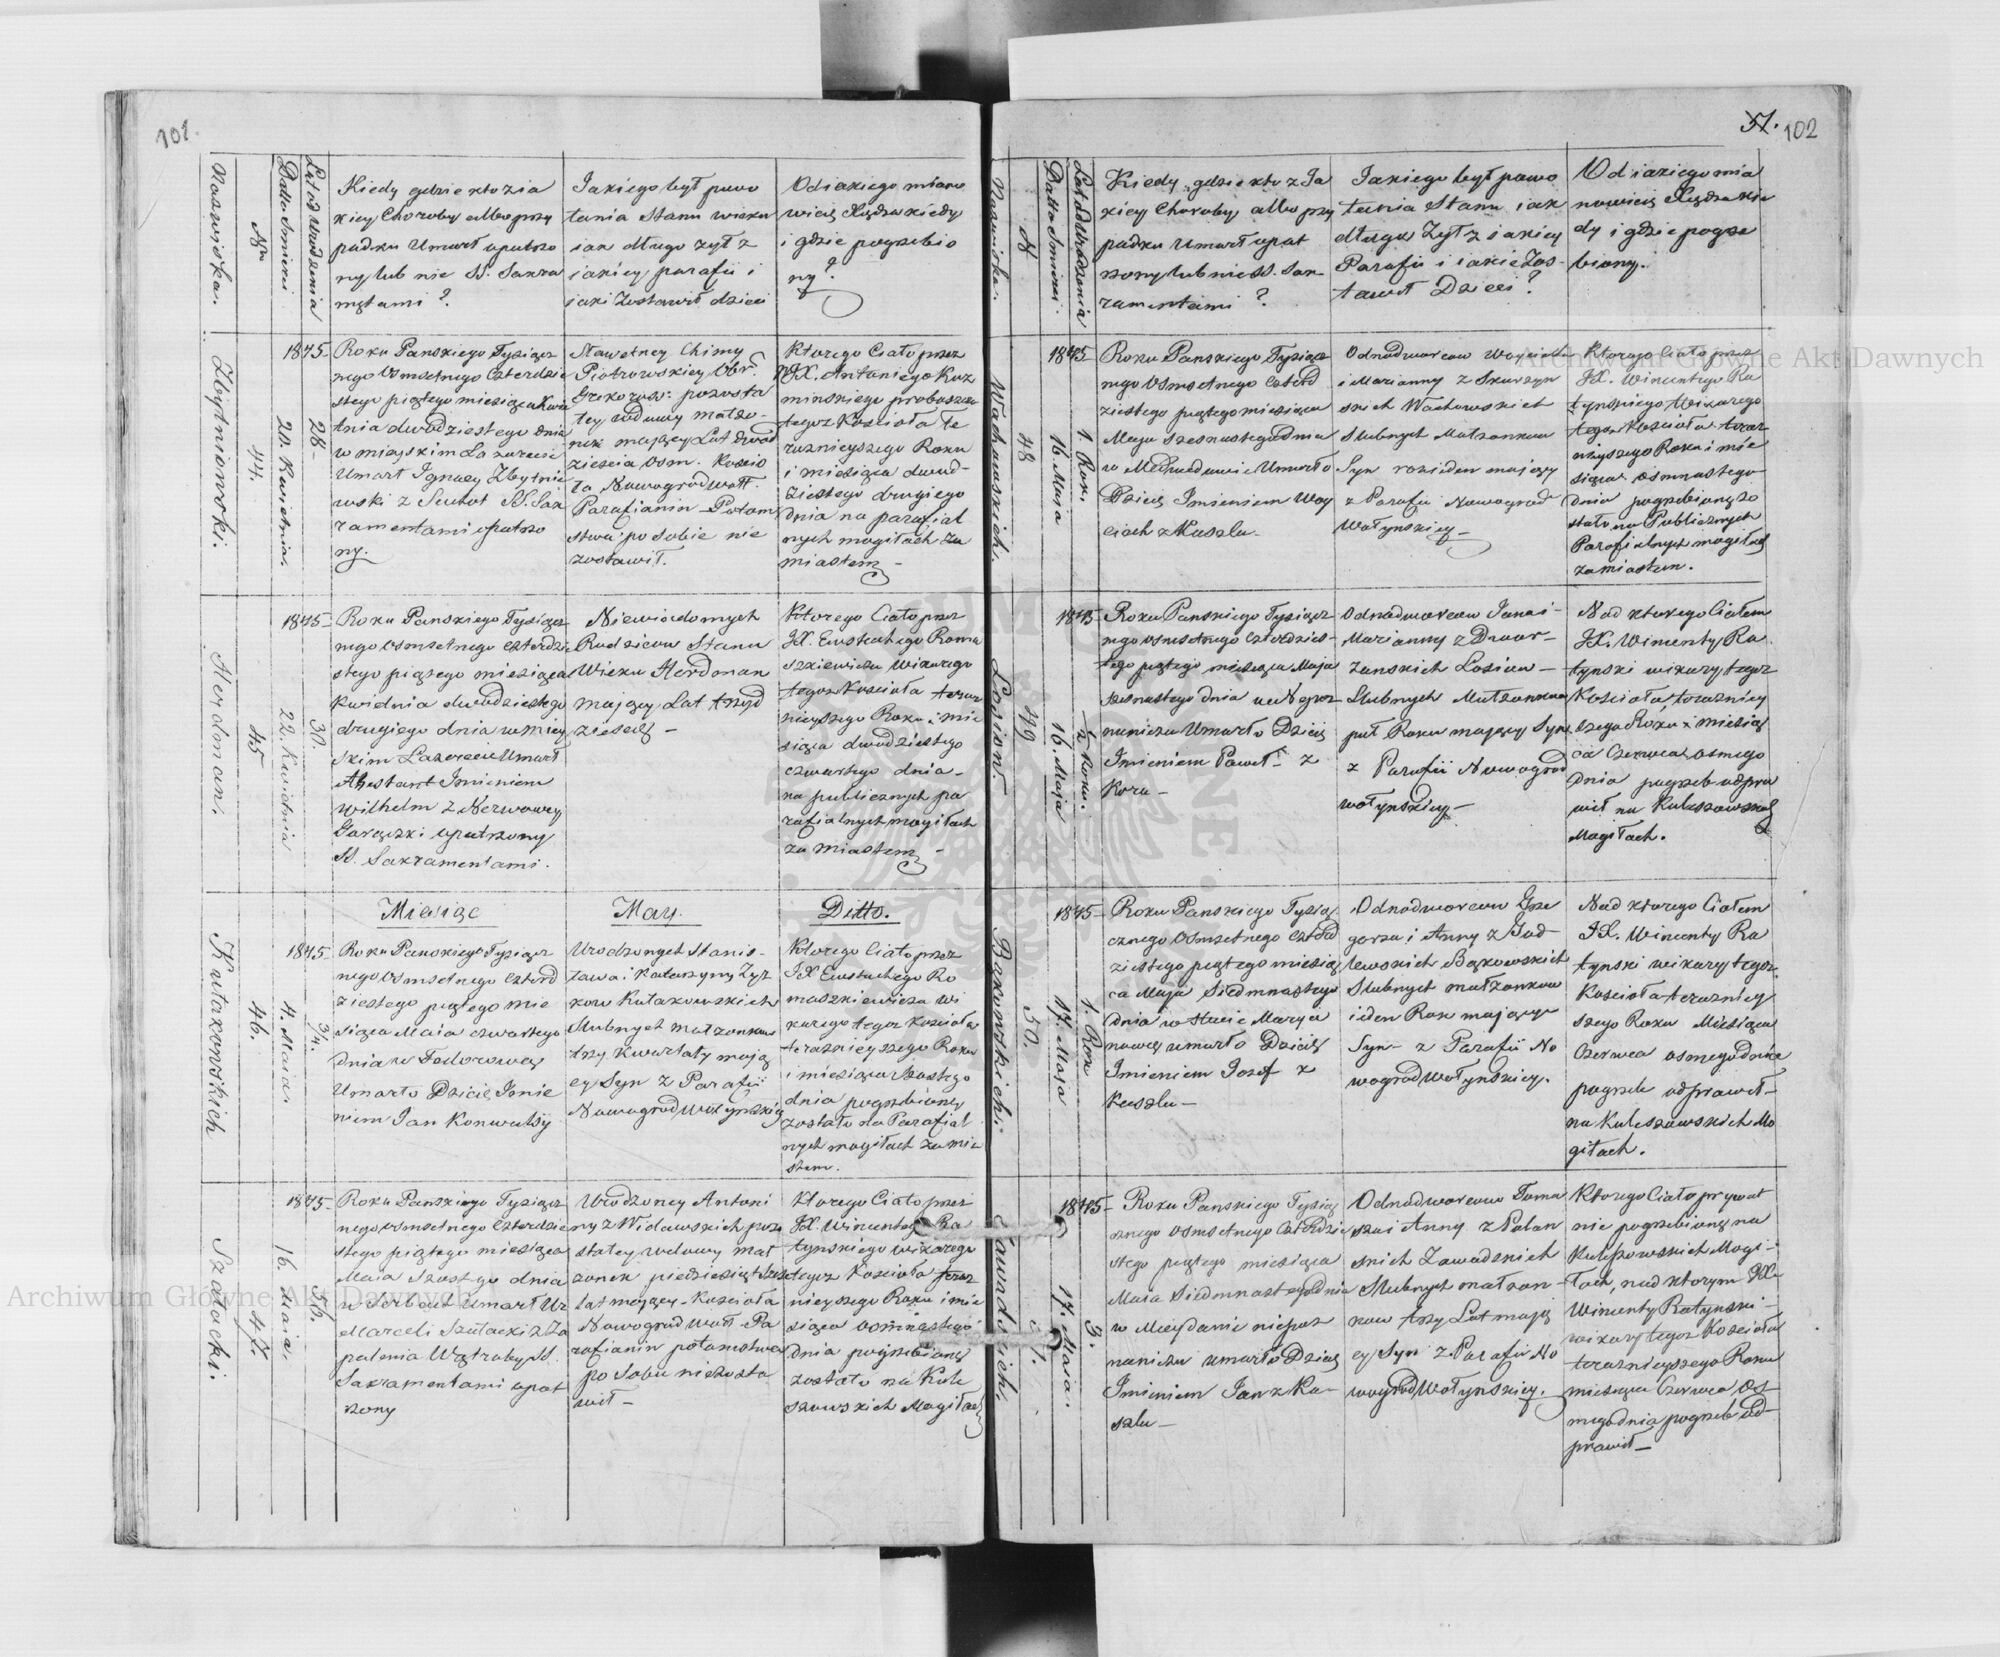 101.
Nazwiska.
Nm
Datta Smierci
Lat od Urodzenia
Kiedy gdzie kto z ia
kiey Choroby albo przy
padku Umarł opatrzo
ny lub nie SS. Sakra
mętami ?
Jakiego był powo
łania Stanu wieku
iak długo żył z
jakiey parafii i
jaki Zostawił dzieci
Od iakiego miano
wicie Xiędza kiedy
i gdzie pogrzebio
ny ?
Zbytniowski.
44.
20. Kwietnia.
28-
1845-
Roku Panskiego Tysiącz
nego Osmsetnego Czterdzie
stego piątego miesiąca Kwie
tnia dwudziestego dnia
w miejskim Lazarecie
Umarł Ignacy Zbytnie
wski z Suchot SS. Sak
ramentami opatrzo
ny.
Sławetney Chimy
Piotrowskiey Obr.
pozosta
łey wdowy małżo-
nek maiący Lat dwad
zieścia osm. Kościo
ła Nowogrodwołł.
Parafianin - Potom
stwa po sobie nie
zostawił.
Ktorego Ciało przez
JX. Antoniego Kuz
minskiego proboszcza
tegoż Kościoła Te
raznieyszego Roku
i miesiąca dwud-
ziestego drugiego
dnia na parafial
nych mogiłach za
miastem -
Herdman.
45
22. Kwietnia
30.
1845-
Roku Panskiego Tysiącz
nego Osmsetnego Czterdzie
stego piątego miesiąca
Kwietnia dwudziestego
drugiego dnia w miey
skim Lazarecie Umarł
Imieniem
Wilhelm z Nerwowey
Gorączki opatrzony
SS. Sakramentami.
Niewiadomych
Rodzicow Stanu
Wieku Herdman
maiący Lat trzyd
zieście -
Ktorego Ciało przez
JX. Eustachego Roma
szkiewicza Wikarego
tegoż Kościoła teraz
nieyszego Roku i mie
siąca dwudziestego
czwartego dnia -
na publicznych pa
rafialnych mogiłach
za miastem -
Miesiąc
May.
Ditto.
Kułakowskich
46.
4. Maia.
3/4.
1845-
Roku Panskiego Tysiącz
nego Osmsetnego Czterd
ziestego piątego mie
siąca Maia czwartego
dnia w Fedorowcy
Umarło Dziecię Imie
niem Jan Konwulsy
Urodzonych Stanis-
ława i Katarzyny Zyz
kow Kułakowskich
Slubnych małżonkow
trzy kwartały mają
cy Syn z Parafii
Nowogrod Wołynskiey
Ktorego Ciało przez
JX Eustachego Ro
maszkiewicza Wi
karego tegoż Kościoła
teraznieyszego Roku
i miesiąca Szostego
dnia pogrzebione
zostało na Parafial
nych mogiłach za mia
stem.
Szałocki.
47.
16. Maia.
56.
1845-
Roku Panskiego Tysiącz
nego Osmsetnego Czterdzie
stego piątego miesiąca
Maia Szostego dnia
w Serbach Umarł Ur
Marceli Szałacki z Za
palenia Wątroby SS
Sakramentami opat
rzony
Urodzoney Antoni
ny z Widawskich pozo
stałey wdowy mał
żonek piedziesiąt szesc
lat maiący - Kościoła
Nowogrod Wołł - Pa
rafianin potomstwa
po Sobie niezosta
wił -
Ktorego Ciało przez
JX. Wincentego Ra
tynskiego wikarego
tegoż Kościoła teraz
nieyszego Roku i mie
siąca osmnastego
dnia pogrzebione
zostało na Kule
szowskich Mogiłach
51. 102
Nazwiska.
N
Datta Smierci.
Lat od Urodzenia
Kiedy gdzie kto z Ja
kiey Choroby albo przy
padku Umarł opat
rzony lub nie SS. Sak
ramentami ?
Jakiego był powo
łania Stanu iak
długo Żył z iakiey
Parafii i iakie Zos-
tawił Dzieci ?
Od iakiego mia
nowicie Xiędza kie
dy i gdzie pogrze
biony.
Wachowskich.
48
16. Maia
1. Rok.
1845
Roku Panskiego Tysiącz
nego Osmsetnego Czterd
ziestego piątego miesiąca
Maja szesnastego dnia
w Medwedowie Umarło
Dziecię Imieniem Woy
ciech z Kaszlu -
Odnodworcow Woyciecha
i Marianny z Skurzyn
skich Wachowskich
Slubnych Małżonkow
Syn rok ieden maiący
z Parafii Nowogrod
Wołynskiey -
Ktorego Ciało przez
JX. Wincentego Ra
tynskiego Wikarego
tegoż Kościoła teraz
nieyszego Roku i mie
siąca osmnastego
dnia pogrzebione zo
stało na Publicznych
Parafialnych mogiłach
za miastem.
Łosiow.
49
16. Maja
1/2 Roku.
1845
Roku Panskiego Tysiącz
nego Osmsetnego Czterdzies-
tego piątego miesiąca Maja
szesnastego dnia
Umarło Dziecię
Imieniem Paweł z
Koru -
Odnodworcow Jana i
Marianny z Dwor-
zanskich Łosiow -
Slubnych Małżonkow
puł Roku maiący Syn
z Parafii Nowogrod
wołynskiey -
Nad ktorego Ciałem
JX. Wincenty Ra
tynski wikary tegoż
Kościoła terazniey
szego Roku i miesią
ca Czerwca osmego
dnia pogrzeb odpra
wił na Kuleszowskich
Mogiłach.
Bąkowskich.
50.
17. Maja
1. Rok
1845-
Roku Panskiego Tysią
cznego Osmsetnego Czterd
ziestego piątego miesią
ca Maja Siedmnastego
dnia w Stucie Marya
nowcy umarło Dziecię
Imieniem Jozef z
Kaszlu -
Odnodworcow Grze
gorza i Anny z God-
lewskich Bąkowskich
Slubnych małżonkow
ieden Rok maiący
Syn - z Parafii No
wogrod Wołynskiey.
Nad ktorego Ciałem
JX. Wincenty Ra
tynski wikary tegoż
Kościoła terazniey
szego Roku Miesiąca
Czerwca osmego dnia
pogrzeb odprawił -
na Kuleszowskich Mo
giłach.
Zawadskich.
51.
17. Maja.
3.
1845-
Roku Panskiego Tysią
cznego Osmsetnego Czterdzie
stego piątego miesiąca
Maia Siedmnastego dnia
w Maydanie
umarło Dziecię
Imieniem Jan z Ka-
szlu -
Odnodworcow Toma
sza i Anny z Polan
skich Zawadzkich
Slubnych małżon-
kow trzy Lat mają
cy Syn z Parafii No
wogrod Wołynskiey.
Ktorego Ciało prywat
nie pogrzebione na
Kuleszowskich Mogi-
łach, nad ktorym JX-
Wincenty Ratynski -
wikary tegoż Kościoła
teraznieyszego Roku
miesiąca Czerwca os-
mego dnia pogrzeb od-
prawił -
Archiwum Główne Akt Dawnych
Archiwum Główne Akt Dawnych